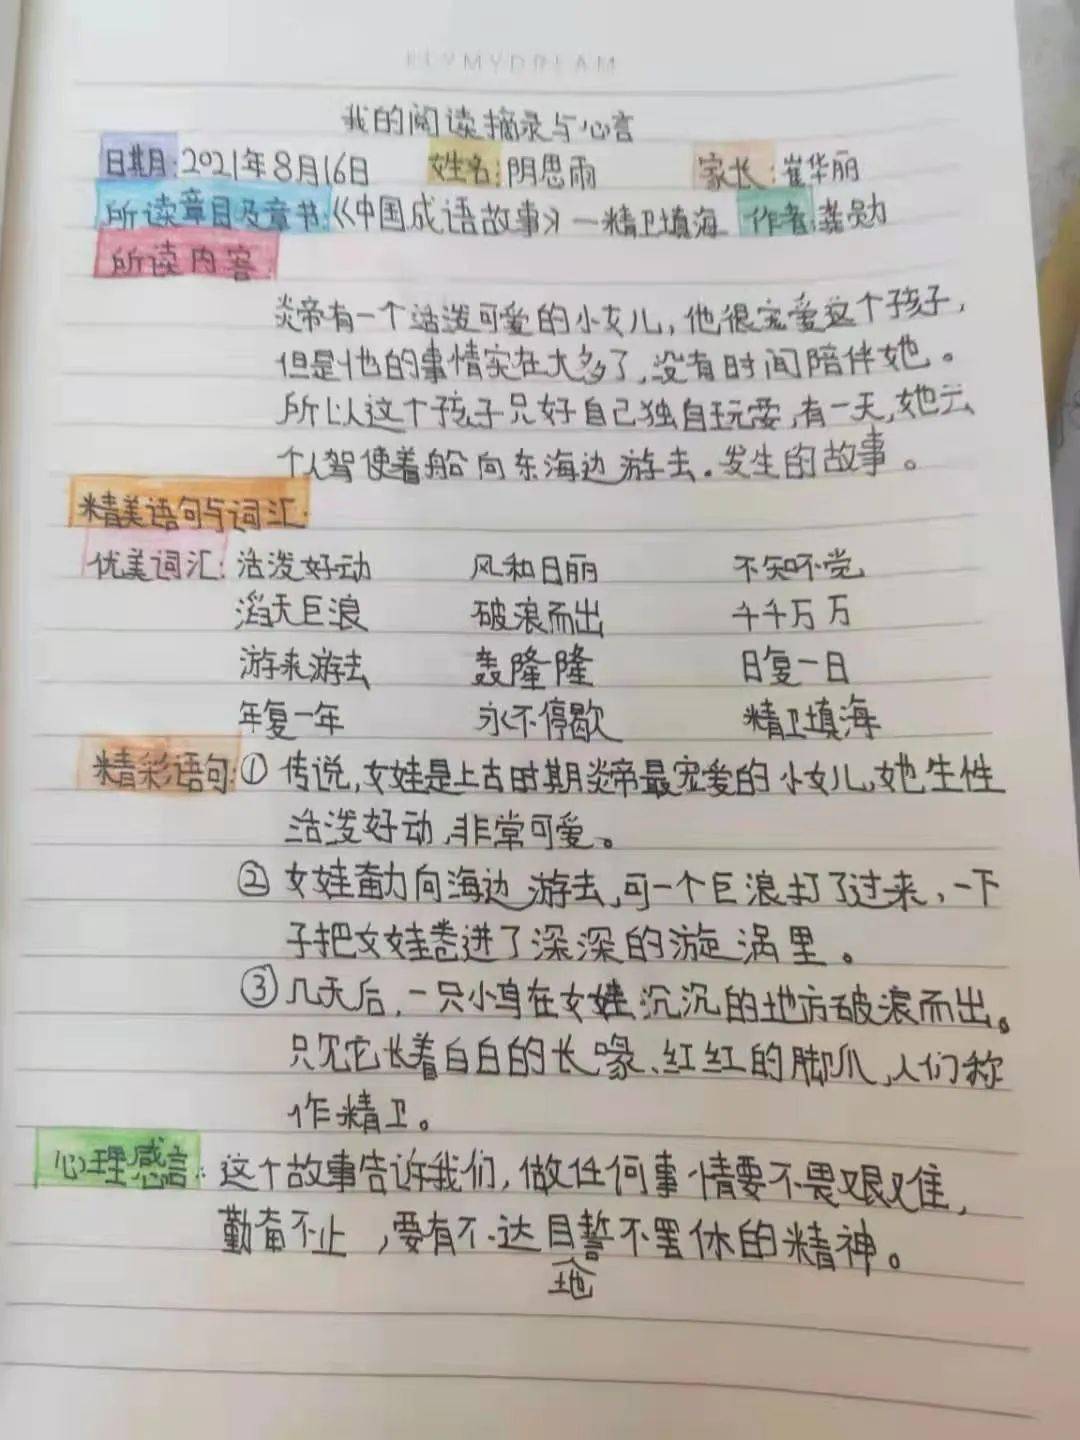 FLYMYDREAM
我的阅读摘录与心言
日期:2021年8月16日 姓名:阴思雨 家长:崔华丽
所读章目及章书:《中国成语故事》—精卫填海 作者:龚勋
所读内容:
炎帝有一个活泼可爱的小女儿,他很宠爱这个孩子,
但是他的事情实在太多了,没有时间陪伴她。
所以这个孩子只好自己独自玩耍,有一天,她云
个人驾使着船向东海边游去.发生的故事。
精美语句与词汇:
优美词汇:活泼好动 风和日丽 不知不觉
滔天巨浪 破浪而出 千千万万
游来游去 轰隆隆 日复一日
年复一年 永不停歇 精卫填海
精彩语句:①传说,女娃是上古时期炎帝最宠爱的小女儿,她生性
活泼好动,非常可爱。
②女娃奋力向海边游去,可一个巨浪打了过来,一下
子把女娃卷进了深深的漩涡里。
③几天后,一只小鸟在女娃沉沉的地方破浪而出。
只见它长着白白的长喙、红红的脚爪,人们称
作精卫。
心理感言:这个故事告诉我们,做任何事情要不畏艰难,
勤奋不止,要有不达目地誓不罢休的精神。